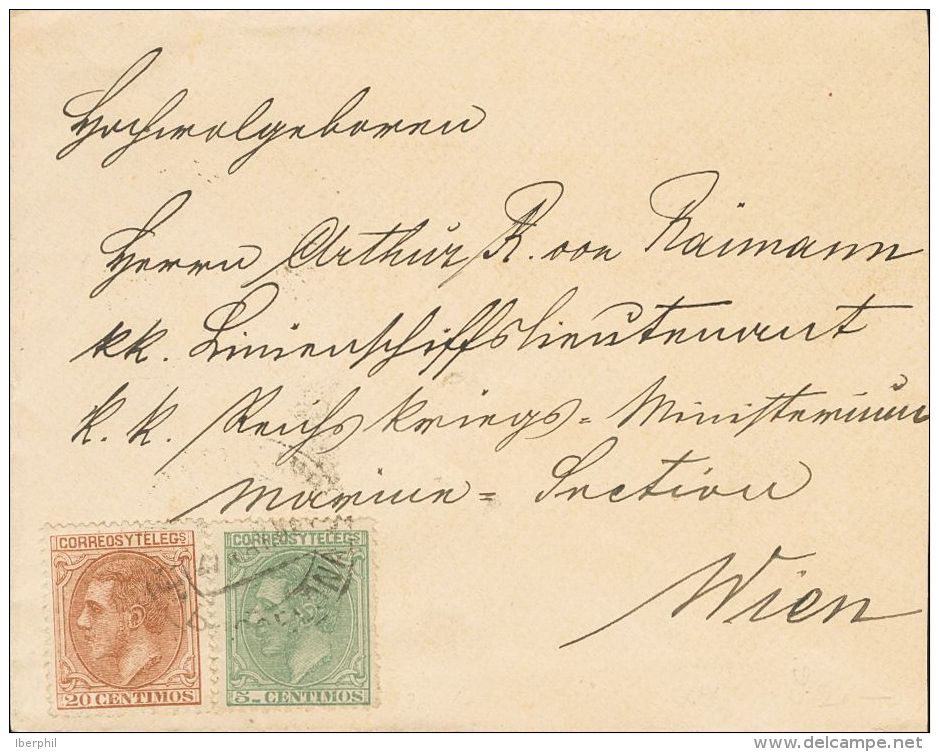 Hochwolgeboren
Herrn Arthur R. von Raimann
k k. Linienschiffslieutenant
k. k. Reichskriegs=Ministerium
Marine=Section
Wien
CORREOS Y TELEGS
20 CENTIMOS
CORREOS Y TELEGS
5 CENTIMOS
Iberphil
www.delcampe.net